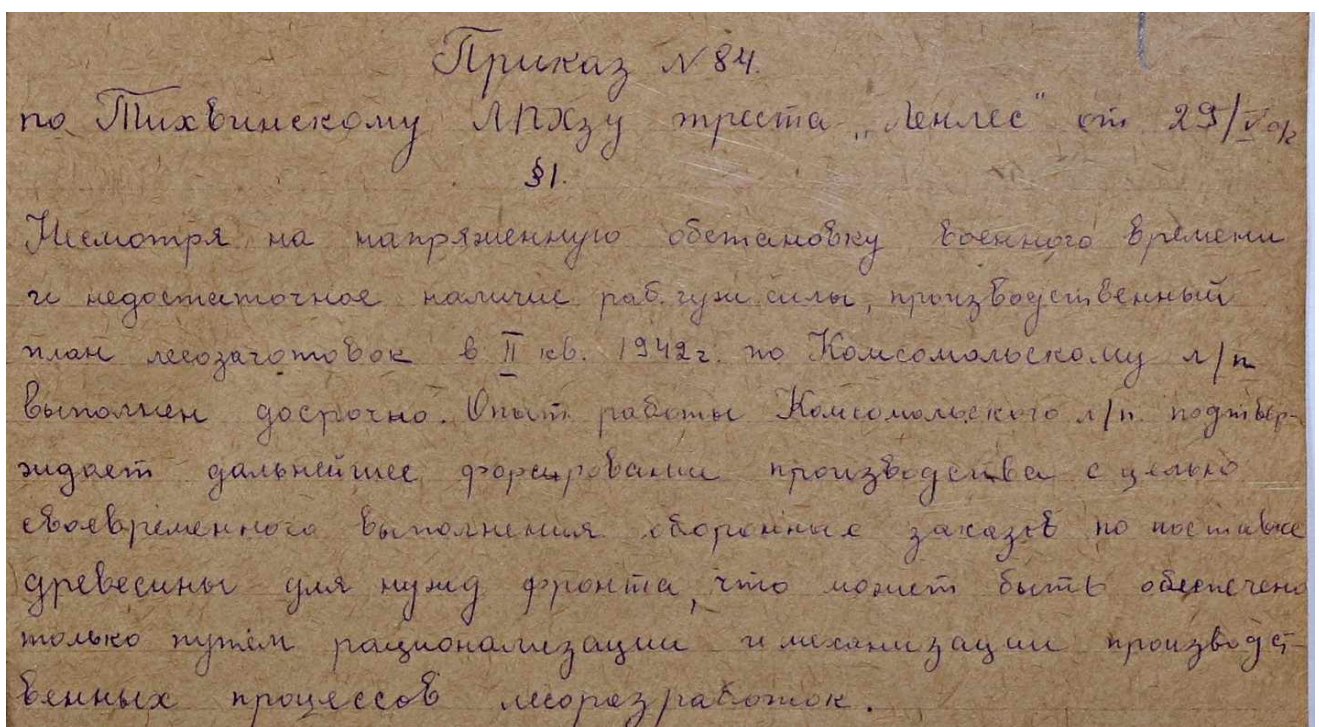 Приказ № 84.
по Тихвинскому ЛПХзу треста „Ленлес" от 29/V
§1.
Несмотря на напряженную обстановку военного времени
и недостаточное наличие раб.гуж силы, производственный
план лесозаготовок в II кв. 1942г. по Комсомольскому л/п
выполнен досрочно. Опыт работы Комсомольского л/п. подтвер-
ждает дальнейшее форсировании производства с целью
своевременного выполнения оборонных заказов по поставке
древесины для нужд фронта, что может быть обеспечено
только путём рационализации и механизации производст-
венных процессов лесоразработок.